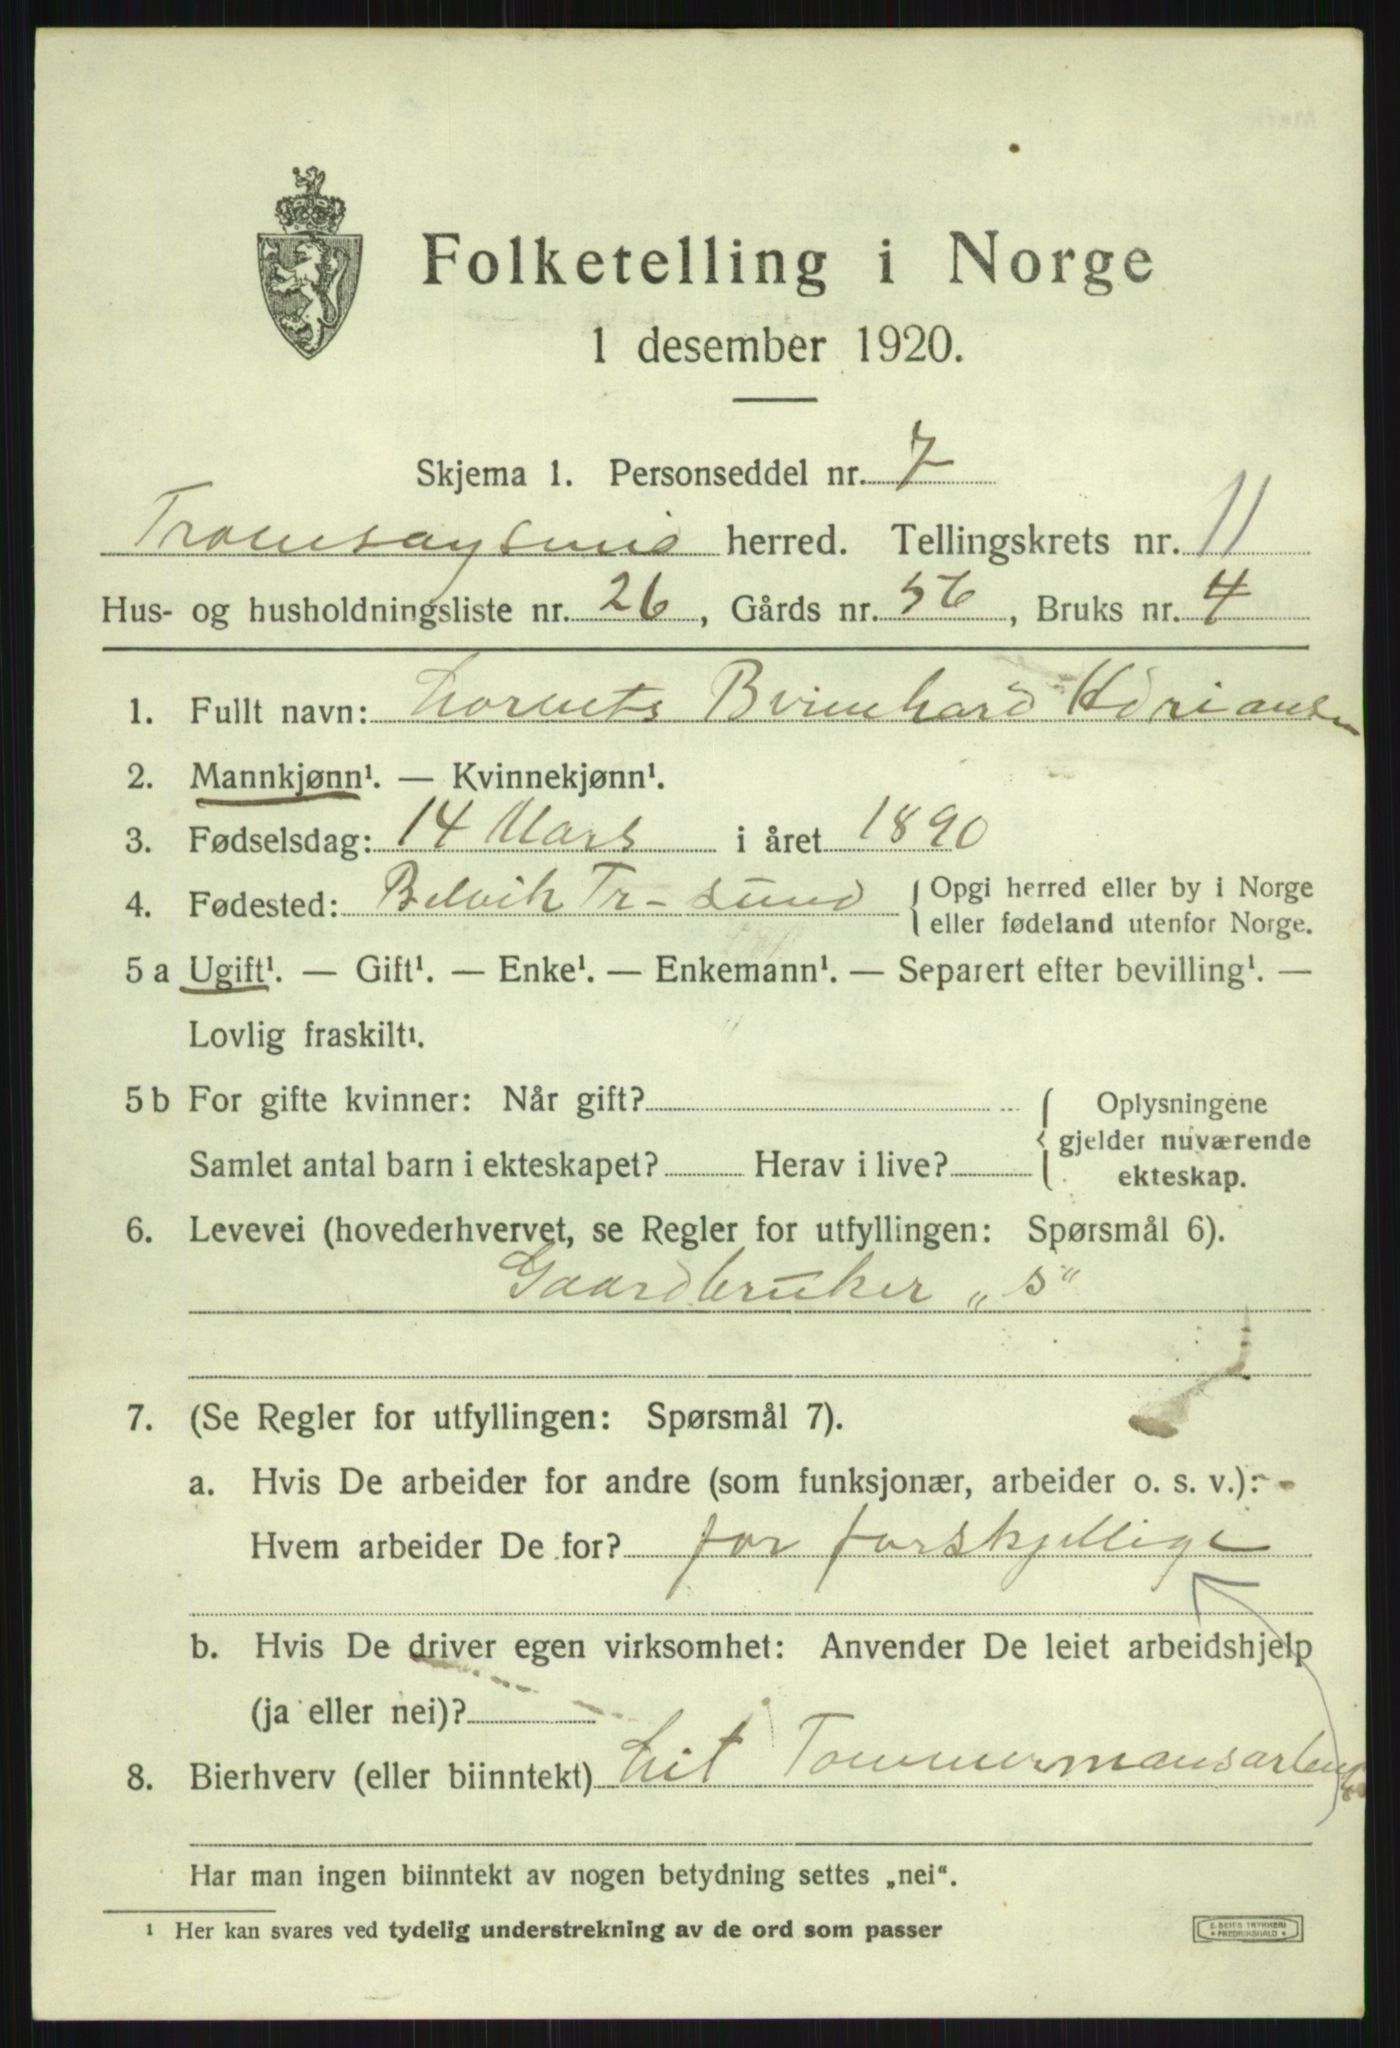 Folketelling i Norge
1 desember 1920.
Skjema 1. Personseddel nr. 7
Tromsøysund herred. Tellingskrets nr. 11
Hus- og husholdningsliste nr. 26, Gårds nr. 56, Bruks nr. 4
1. Fullt navn: Adriansen
2. Mannkjønn¹. — Kvinnekjønn¹.
3. Fødselsdag: 14 Mars i året 1890
4. Fødested: Belvik Tr-sund { Opgi herred eller by i Norge
eller fødeland utenfor Norge.
5 a Ugift¹. — Gift¹. — Enke¹. — Enkemann¹. — Separert efter bevilling¹. —
Lovlig fraskilt¹.
5 b For gifte kvinner: Når gift?
Samlet antal barn i ekteskapet? Herav i live?
Oplysningene
gjelder nuværende
ekteskap.
6. Levevei (hovederhvervet, se Regler for utfyllingen: Spørsmål 6).
Gaardbruker „s“
7. (Se Regler for utfyllingen: Spørsmål 7).
a. Hvis De arbeider for andre (som funksjonær, arbeider o. s. v.):
Hvem arbeider De for? for forskjellige
b. Hvis De driver egen virksomhet: Anvender De leiet arbeidshjelp
(ja eller nei)?
8. Bierhverv (eller biinntekt) Lit
Har man ingen biinntekt av nogen betydning settes „nei“.
¹ Her kan svares ved tydelig understrekning av de ord som passer
E. SEM'S TRYKKERI
FREDRIKSHALD